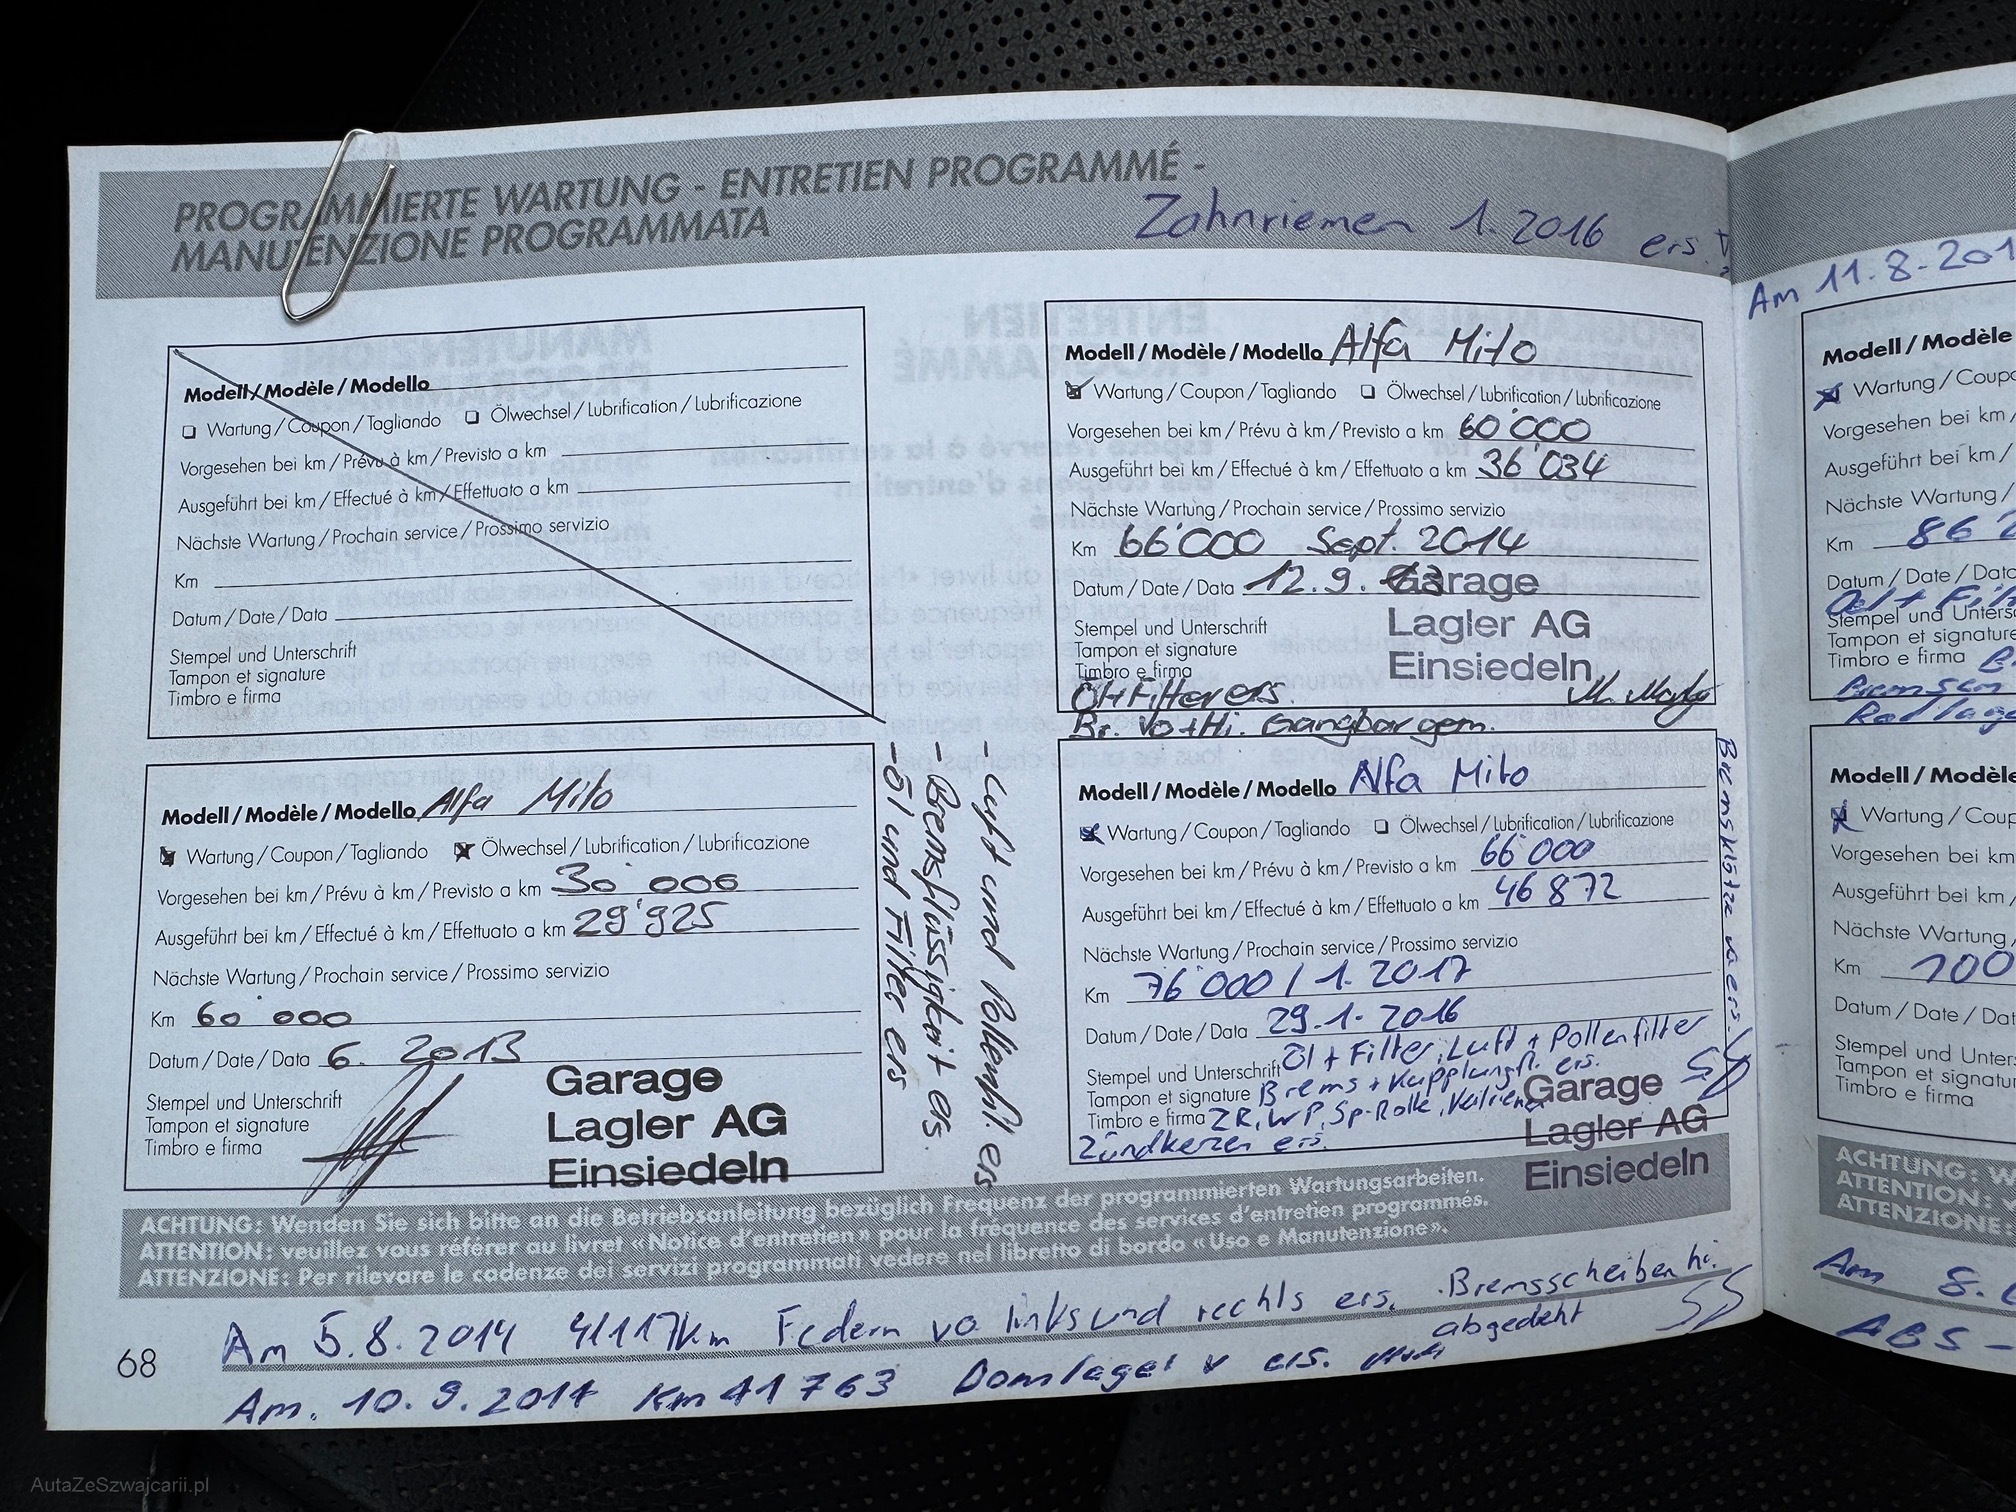 PROGRAMMIERTE WARTUNG - ENTRETIEN PROGRAMMÉ -
MANUTENZIONE PROGRAMMATA
Zahnriemen 1.2016 ers.
Modell / Modèle / Modello
Wartung / Coupon / Tagliando Ölwechsel / Lubrification / Lubrificazione
Vorgesehen bei km / Prévu à km / Previsto a km
Ausgeführt bei km / Effectué à km / Effettuato a km
Nächste Wartung / Prochain service / Prossimo servizio
Km
Datum / Date / Data
Stempel und Unterschrift
Tampon et signature
Timbro e firma
Modell / Modèle / Modello Alfa Mito
Wartung / Coupon / Tagliando Ölwechsel / Lubrification / Lubrificazione
Vorgesehen bei km / Prévu à km / Previsto a km 30'000
Ausgeführt bei km / Effectué à km / Effettuato a km 29'925
Nächste Wartung / Prochain service / Prossimo servizio
Km 60'000
Datum / Date / Data 6. 2013
Stempel und Unterschrift
Tampon et signature
Timbro e firma
Garage
Lagler AG
Einsiedeln
- Öl und Filter ers
- Bremsflüssigkeit ers.
- Luft und Pollenfil. ers
Modell / Modèle / Modello Alfa Mito
Wartung / Coupon / Tagliando Ölwechsel / Lubrification / Lubrificazione
Vorgesehen bei km / Prévu à km / Previsto a km 60'000
Ausgeführt bei km / Effectué à km / Effettuato a km 36'034
Nächste Wartung / Prochain service / Prossimo servizio
Km 66'000 Sept. 2014
Datum / Date / Data 12.9.
Garage
Lagler AG
Einsiedeln
Stempel und Unterschrift
Tampon et signature
Timbro e firma
Öl+Filter ers.
Br. Vo+Hi. Gangbar gem.
Modell / Modèle / Modello Alfa Mito
Wartung / Coupon / Tagliando Ölwechsel / Lubrification / Lubrificazione
Vorgesehen bei km / Prévu à km / Previsto a km 66'000
Ausgeführt bei km / Effectué à km / Effettuato a km 46'872
Nächste Wartung / Prochain service / Prossimo servizio
Km 76'000 / 1.2017
Datum / Date / Data 29.1.2016
Stempel und Unterschrift Öl + Filter, Luft + Pollenfilter
Tampon et signature Brems + Kupplungsfl. ers.
Timbro e firma ZR, WP, Sp-Rolle, Keilriemen
Zündkerzen ers.
Garage
Lagler AG
Einsiedeln
Bremsklötze vo ers.
ACHTUNG: Wenden Sie sich bitte an die Betriebsanleitung bezüglich Frequenz der programmierten Wartungsarbeiten.
ATTENTION: veuillez vous référer au livret «Notice d'entretien» pour la fréquence des services d'entretien programmés.
ATTENZIONE: Per rilevare le cadenze dei servizi programmati vedere nel libretto di bordo «Uso e Manutenzione».
Am 5.8.2014 41117Km Federn vo links und rechts ers. Bremsscheiben hi.
abgedeht
68
Am. 10.9.2014 Km 41763 Domlager v ers.
Am 11.8.201
Modell / Modèle
Wartung / Coupo
Vorgesehen bei km /
Ausgeführt bei km /
Nächste Wartung /
Km 86
Datum / Date / Data
Oel + Filt
Stempel und Untersc
Tampon et signature
Timbro e firma
Bremsen
Radlage
Modell / Modè
Wartung / Coup
Vorgesehen bei km
Ausgeführt bei km /
Nächste Wartung
Km 100
Datum / Date / Dat
Stempel und Unters
Tampon et signature
Timbro e firma
ACHTUNG: W
ATTENTION: v
ATTENZIONE:
Am 8.
ABS -
AutaZeSzwajcarii.pl